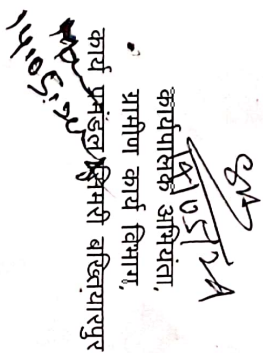 14/05/24
कार्यपालक अभियंता,
ग्रामीण कार्य विभाग,
कार्य प्रमंडल, सिमरी बख्तियारपुर
14.05.24